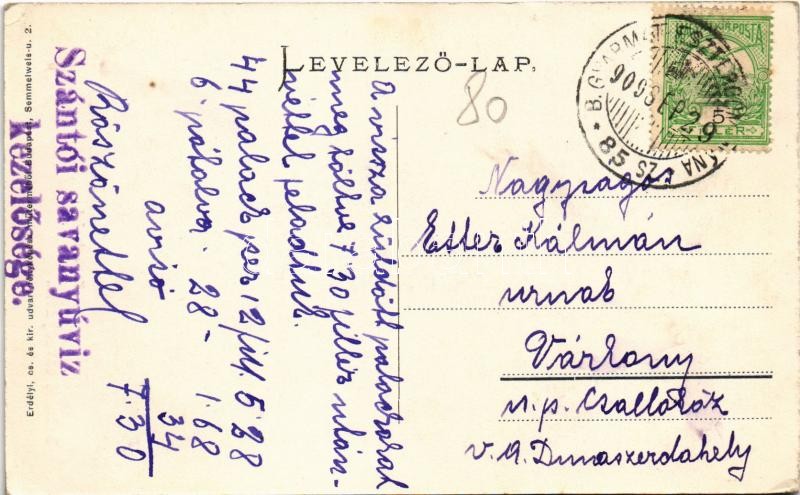 LEVELEZŐ-LAP.
80
MAGYAR KIR. POSTA
5
B. GYARMAT
909 SEP 29
85 SZ
Nagyságos
Etter Kálmán
urnak
Várkony
u.p. Csallóköz
v. á. Dunaszerdahely
A vissza küldött palackokat
meg töltve 7·30 fillér után-
véttel feladtuk.
44 palack per 12 fill 5·28
6 pótolva 28 - 1·68
avisó 34
7·30
Köszönettel
Szántói savanyúvíz
kezelősége.
Erdélyi, cs. és kir. udvari fényképész, Budapest, Semmelweis-u. 2.